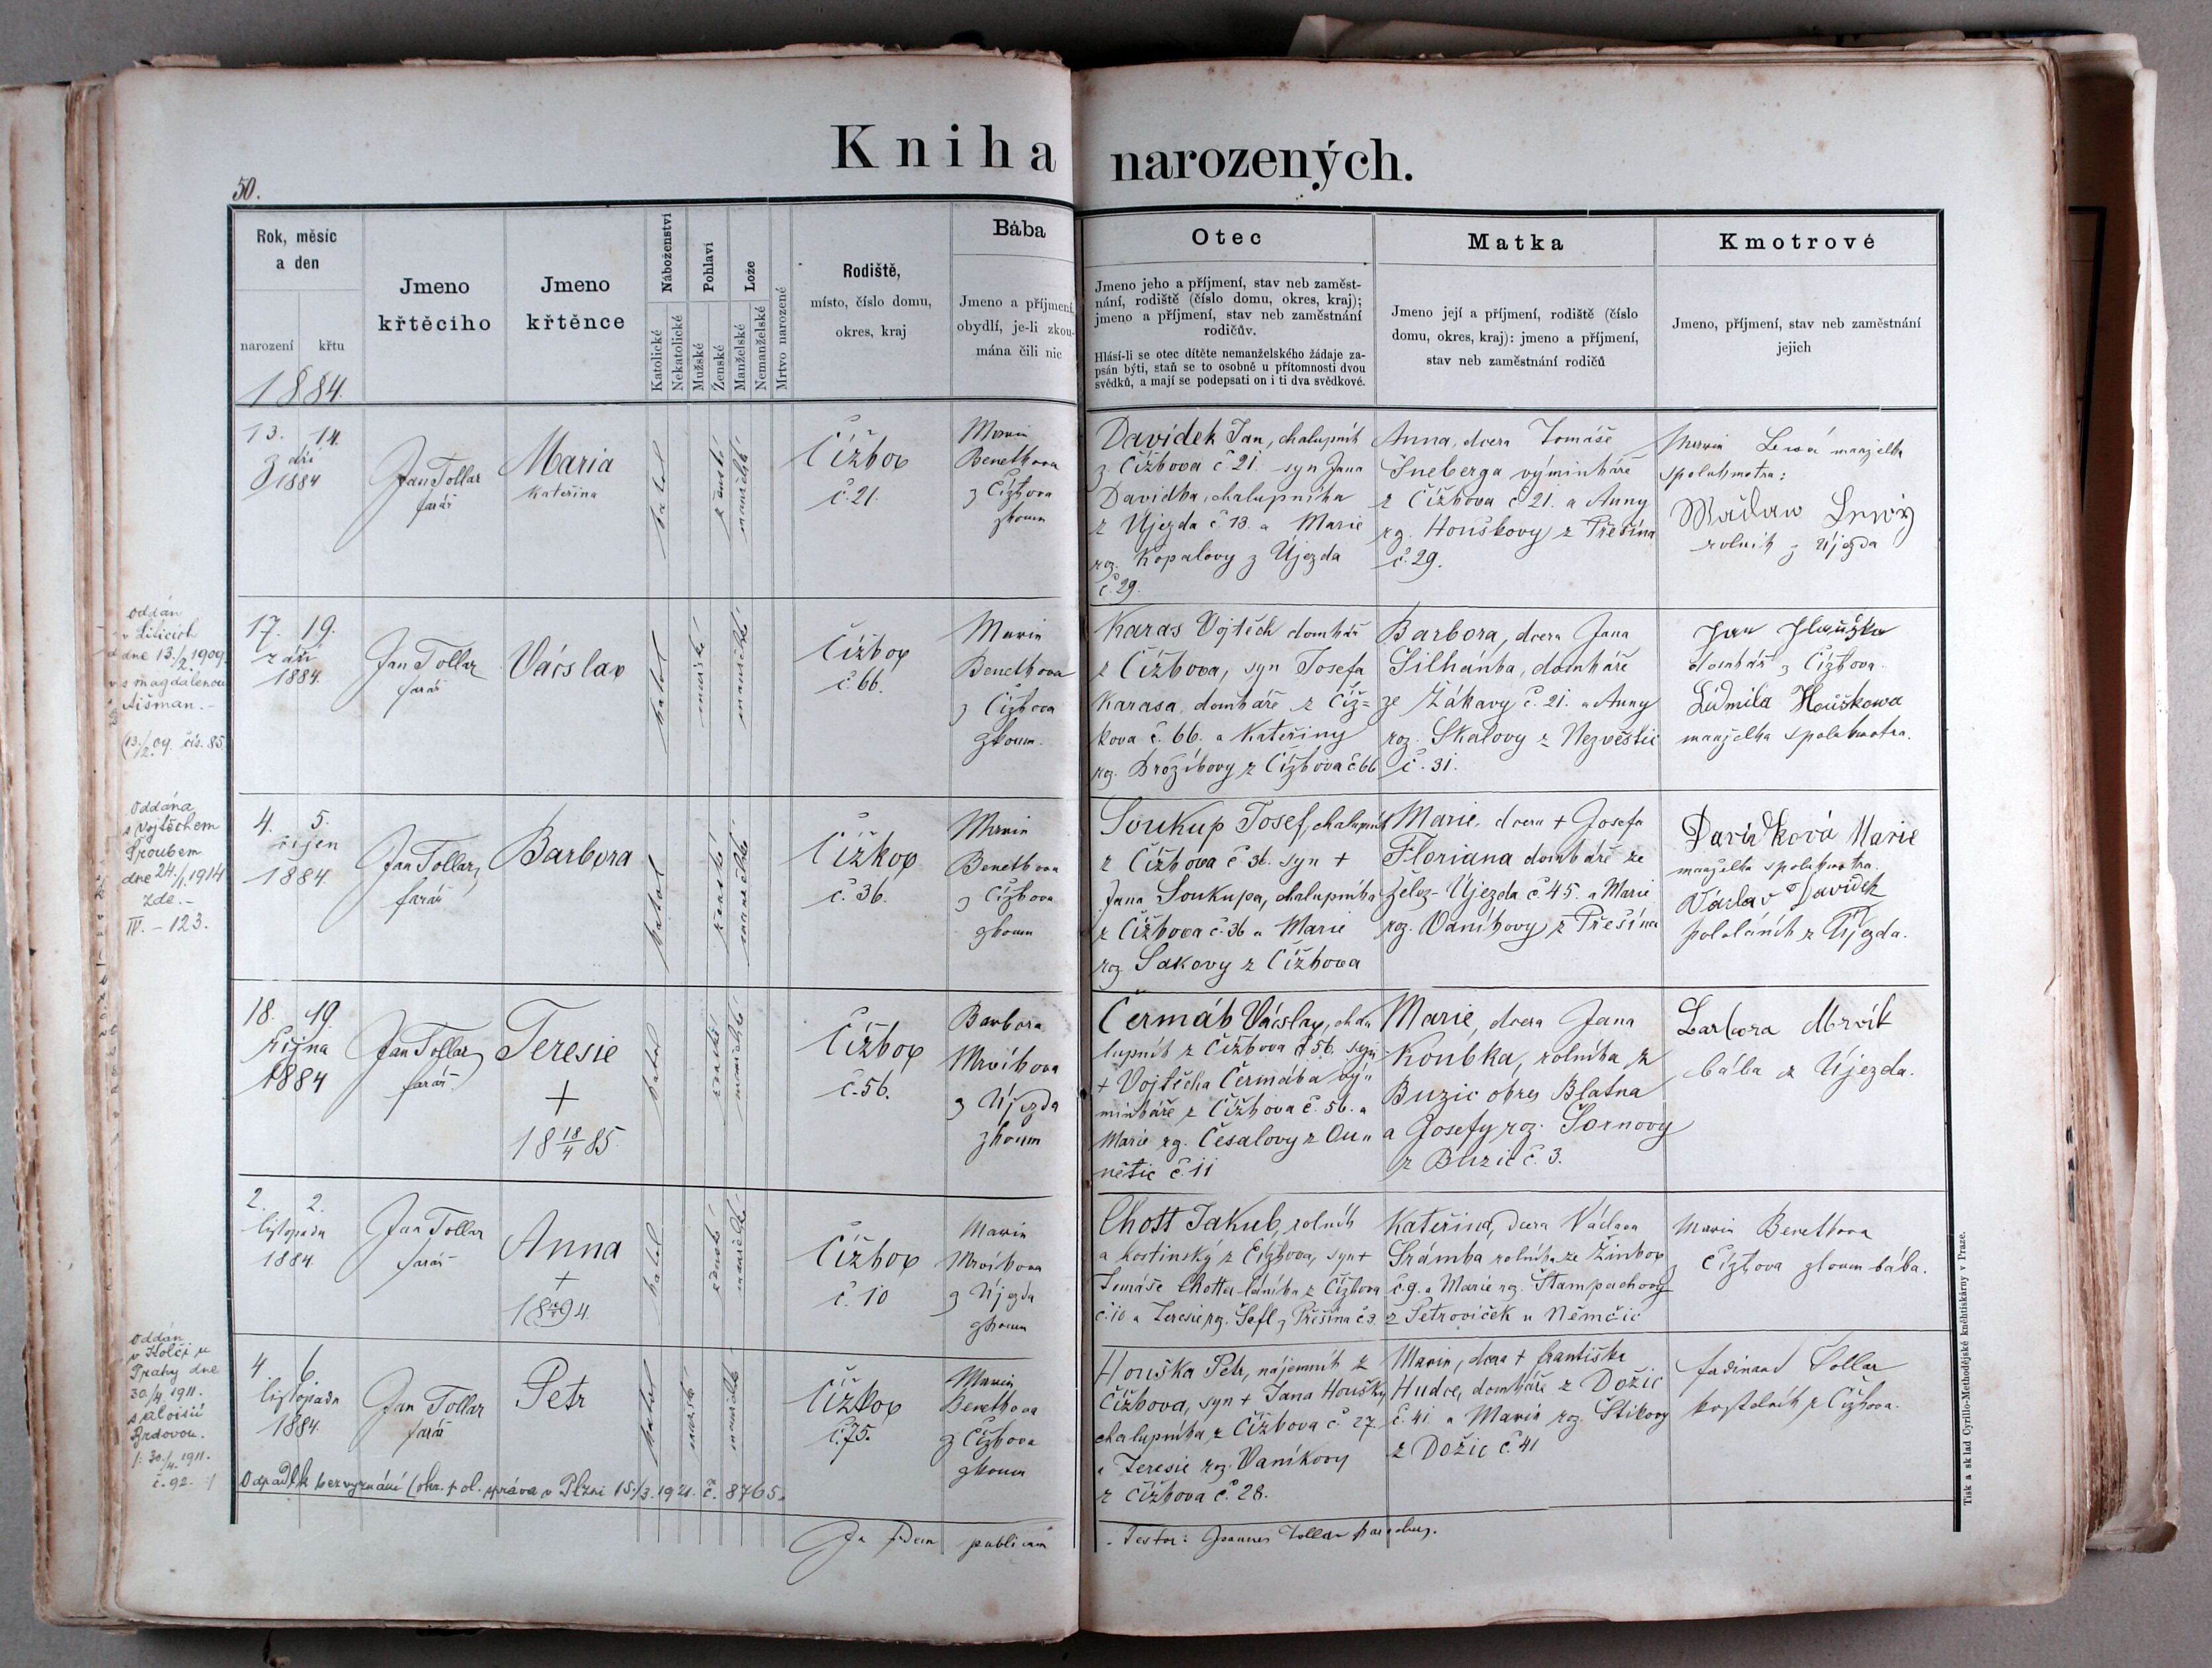 Kniha narozených.
50.
Rok, měsíc
a den
narození křtu
1884.
Jmeno
křtěcího
Jmeno
křtěnce
Náboženství
Katolické
Nekatolické
Pohlaví
Mužské
Ženské
Lože
Manželské
Nemanželské
Mrtvo narozené
Rodiště,
místo, číslo domu,
okres, kraj
Bába
Jmeno a příjmení,
obydlí, je-li zkou-
mána čili nic
Otec
Jmeno jeho a příjmení, stav neb zaměst-
nání, rodiště (číslo domu, okres, kraj);
jmeno a příjmení, stav neb zaměstnání
rodičův.
Hlásí-li se otec dítěte nemanželského žádaje za-
psán býti, staň se to osobně u přítomnosti dvou
svědků, a mají se podepsati on i ti dva svědkové.
Matka
Jmeno její a příjmení, rodiště (číslo
domu, okres, kraj): jmeno a příjmení,
stav neb zaměstnání rodičů
Kmotrové
Jmeno, příjmení, stav neb zaměstnání
jejich
13. 14.
září
1884
Jan Tollar
farář
Maria
Kateřina
katol
ženské
manželské
Čížkov
č. 21.
Marie
Benethova
z Čížkova
zkoum
Davídek Jan, chalupník
z Čížkova č 21. syn Jana
Davidka, chalupníka
z Újezda č. 13. a Marie
roz. Kopalovy z Újezda
č. 29.
Anna, dcera Tomáše
Šneberga výminkáře
z Čížkova č 21. a Anny
rz. Houškovy z Přešína
č. 29.
manželka
spolukmotra:
rolník z Újezda
oddán
v Liticích
dne 13./2. 1909
s Magdalenou
(13./2. 09. čís. 85
17. 19.
září
1884.
Jan Tollar
farář
Vácslav
katol
mužské
manželské
Čížkov
č. 66.
Marie
Benethova
z Čížkova
zkoum.
Karas Vojtěch domkář
z Čížkova, syn Josefa
Karasa, domkáře z Číž=
kova č. 66. a Kateřiny
rz. Brožíkovy z Čížkova č 66
Barbora, dcera Jana
Šilhánka, domkáře
ze Žákavy č. 21. a Anny
roz. Skalovy z Nezvěstic
č. 31.
Jan Hauška
domkář z Čížkova.
Lidmila Houškowa
manželka spolukmotra.
Oddána
s Vojtěchem
dne 24./1. 1914
zde.-
IV. - 123.
4. 5.
říjen
1884.
Jan Tollar,
farář
Barbora
katol
ženské
manželské
Čížkov
č. 36.
Marie
Benethova
z Čížkova
zkoum
Soukup Josef, chalupník
z Čížkova č 36. syn +
Jana Soukupa, chalupníka
z Čížkova č. 36 a Marie
roz Sakovy z Čížkova
Marie, dcera + Josefa
Floriana domkáře ze
Želez- Újezda č 45. a Marie
roz. Vaníkovy z Přešína
Davidková Marie
manželka spolukmotra.
Václav Davídek
pololáník z Újezda.
18. 19.
října
1884
Jan Tollar,
farář
Teresie
+
18 18/4 85.
katol
ženské
manželské
Čížkov
č. 56.
Barbora
Mrvíkova
z Újezda
zkoum
Čermák Vácslav, cha
lupník z Čížkova č 56. syn
+ Vojtěcha Čermáka vý„
minkáře z Čížkova č. 56. a
Marie rz. Česalovy z Ou„
nětic č 11
Marie, dcera Jana
Koubka, rolníka z
Buzic okres Blatna
a Josefy roz. Šornovy
z Buzic č. 3.
Barbora Mrvík
bába z Újezda.
2. 2.
listopadu
1884.
Jan Tollar
farář
Anna
+
katol
ženské
manželské
Čížkov
č. 10
Marie
Mrvíkova
z Újezda
zkoum
Chott Jakub, rolník
a hostinský z Čížkova, syn +
Tomáše Chotta láníka z Čížkova
č. 10 a Teresie rz. Šefl z Přešína č 3.
Kateřina, dcera Václava
Srámka rolníka ze Žinkov
č. 9. a Marie rz. Štampachovy
z Petroviček u Němčic
Marie Benethova
z Čížkova zkoum bába.
oddán
v Holči u
Prahy dne
30./4. 1911.
s Aloisií
Brdovou.
/: 30./4. 1911.
č. 92. :/
4 6
listopadu
1884.
Jan Tollar
farář
Petr
katol
mužské
manželské
Čížkov
č. 75.
Marie
Benethova
z Čížkova
zkoum
Houška Petr, nájemník z
Čížkova, syn + Jana Houšky,
chalupníka z Čížkova č. 27.
a Teresie roz. Vaníkovy
z Čížkova č. 28.
Marie, dcera + Františka
Hudce, domkáře z Dožic
č. 41 a Marie roz. Štikovy
z Dožic č 41
Ferdinand Tollar
kostelník z Čížkova.
Odpadlík bez vyznání (okr. pol. správa v Plzni 15/3. 1921. č. 8765.
In fidem publicam
Testor: Joannes Tollar parochus.
Tisk a sklad Cyrillo-Methodějské kněhtiskárny v Praze.